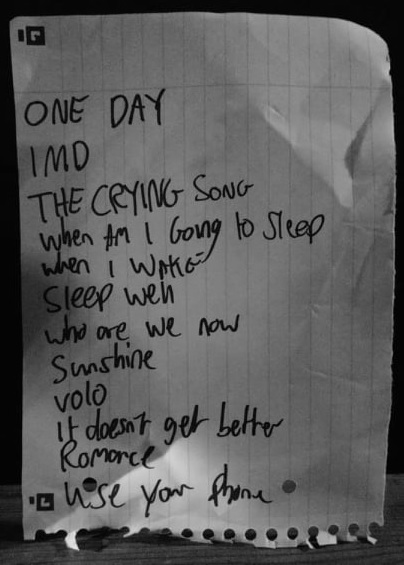 ONE DAY
IMD
THE CRYING SONG
When Am I Going to Sleep
when I WAKE
Sleep well
who are we now
Sunshine
volo
It doesn't get better
Romance
Use your phone